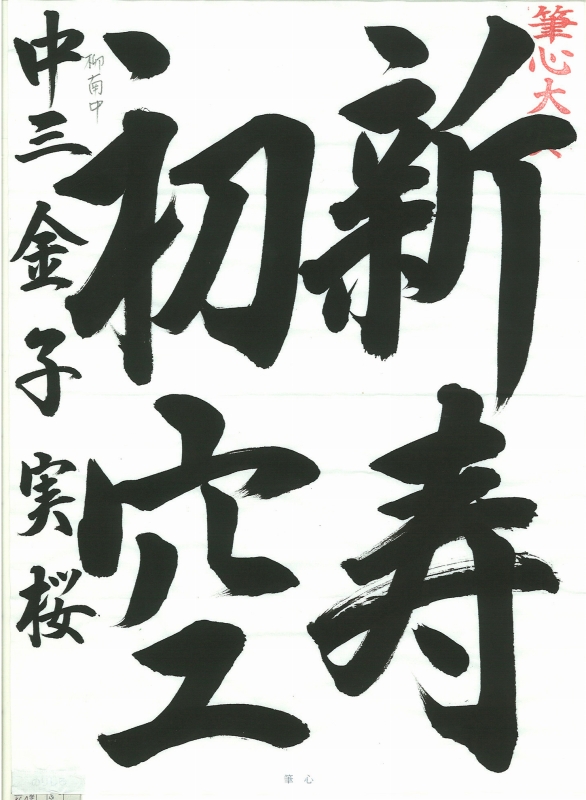 筆心大
新寿
初空
柳南中
中三金子実桜
筆心